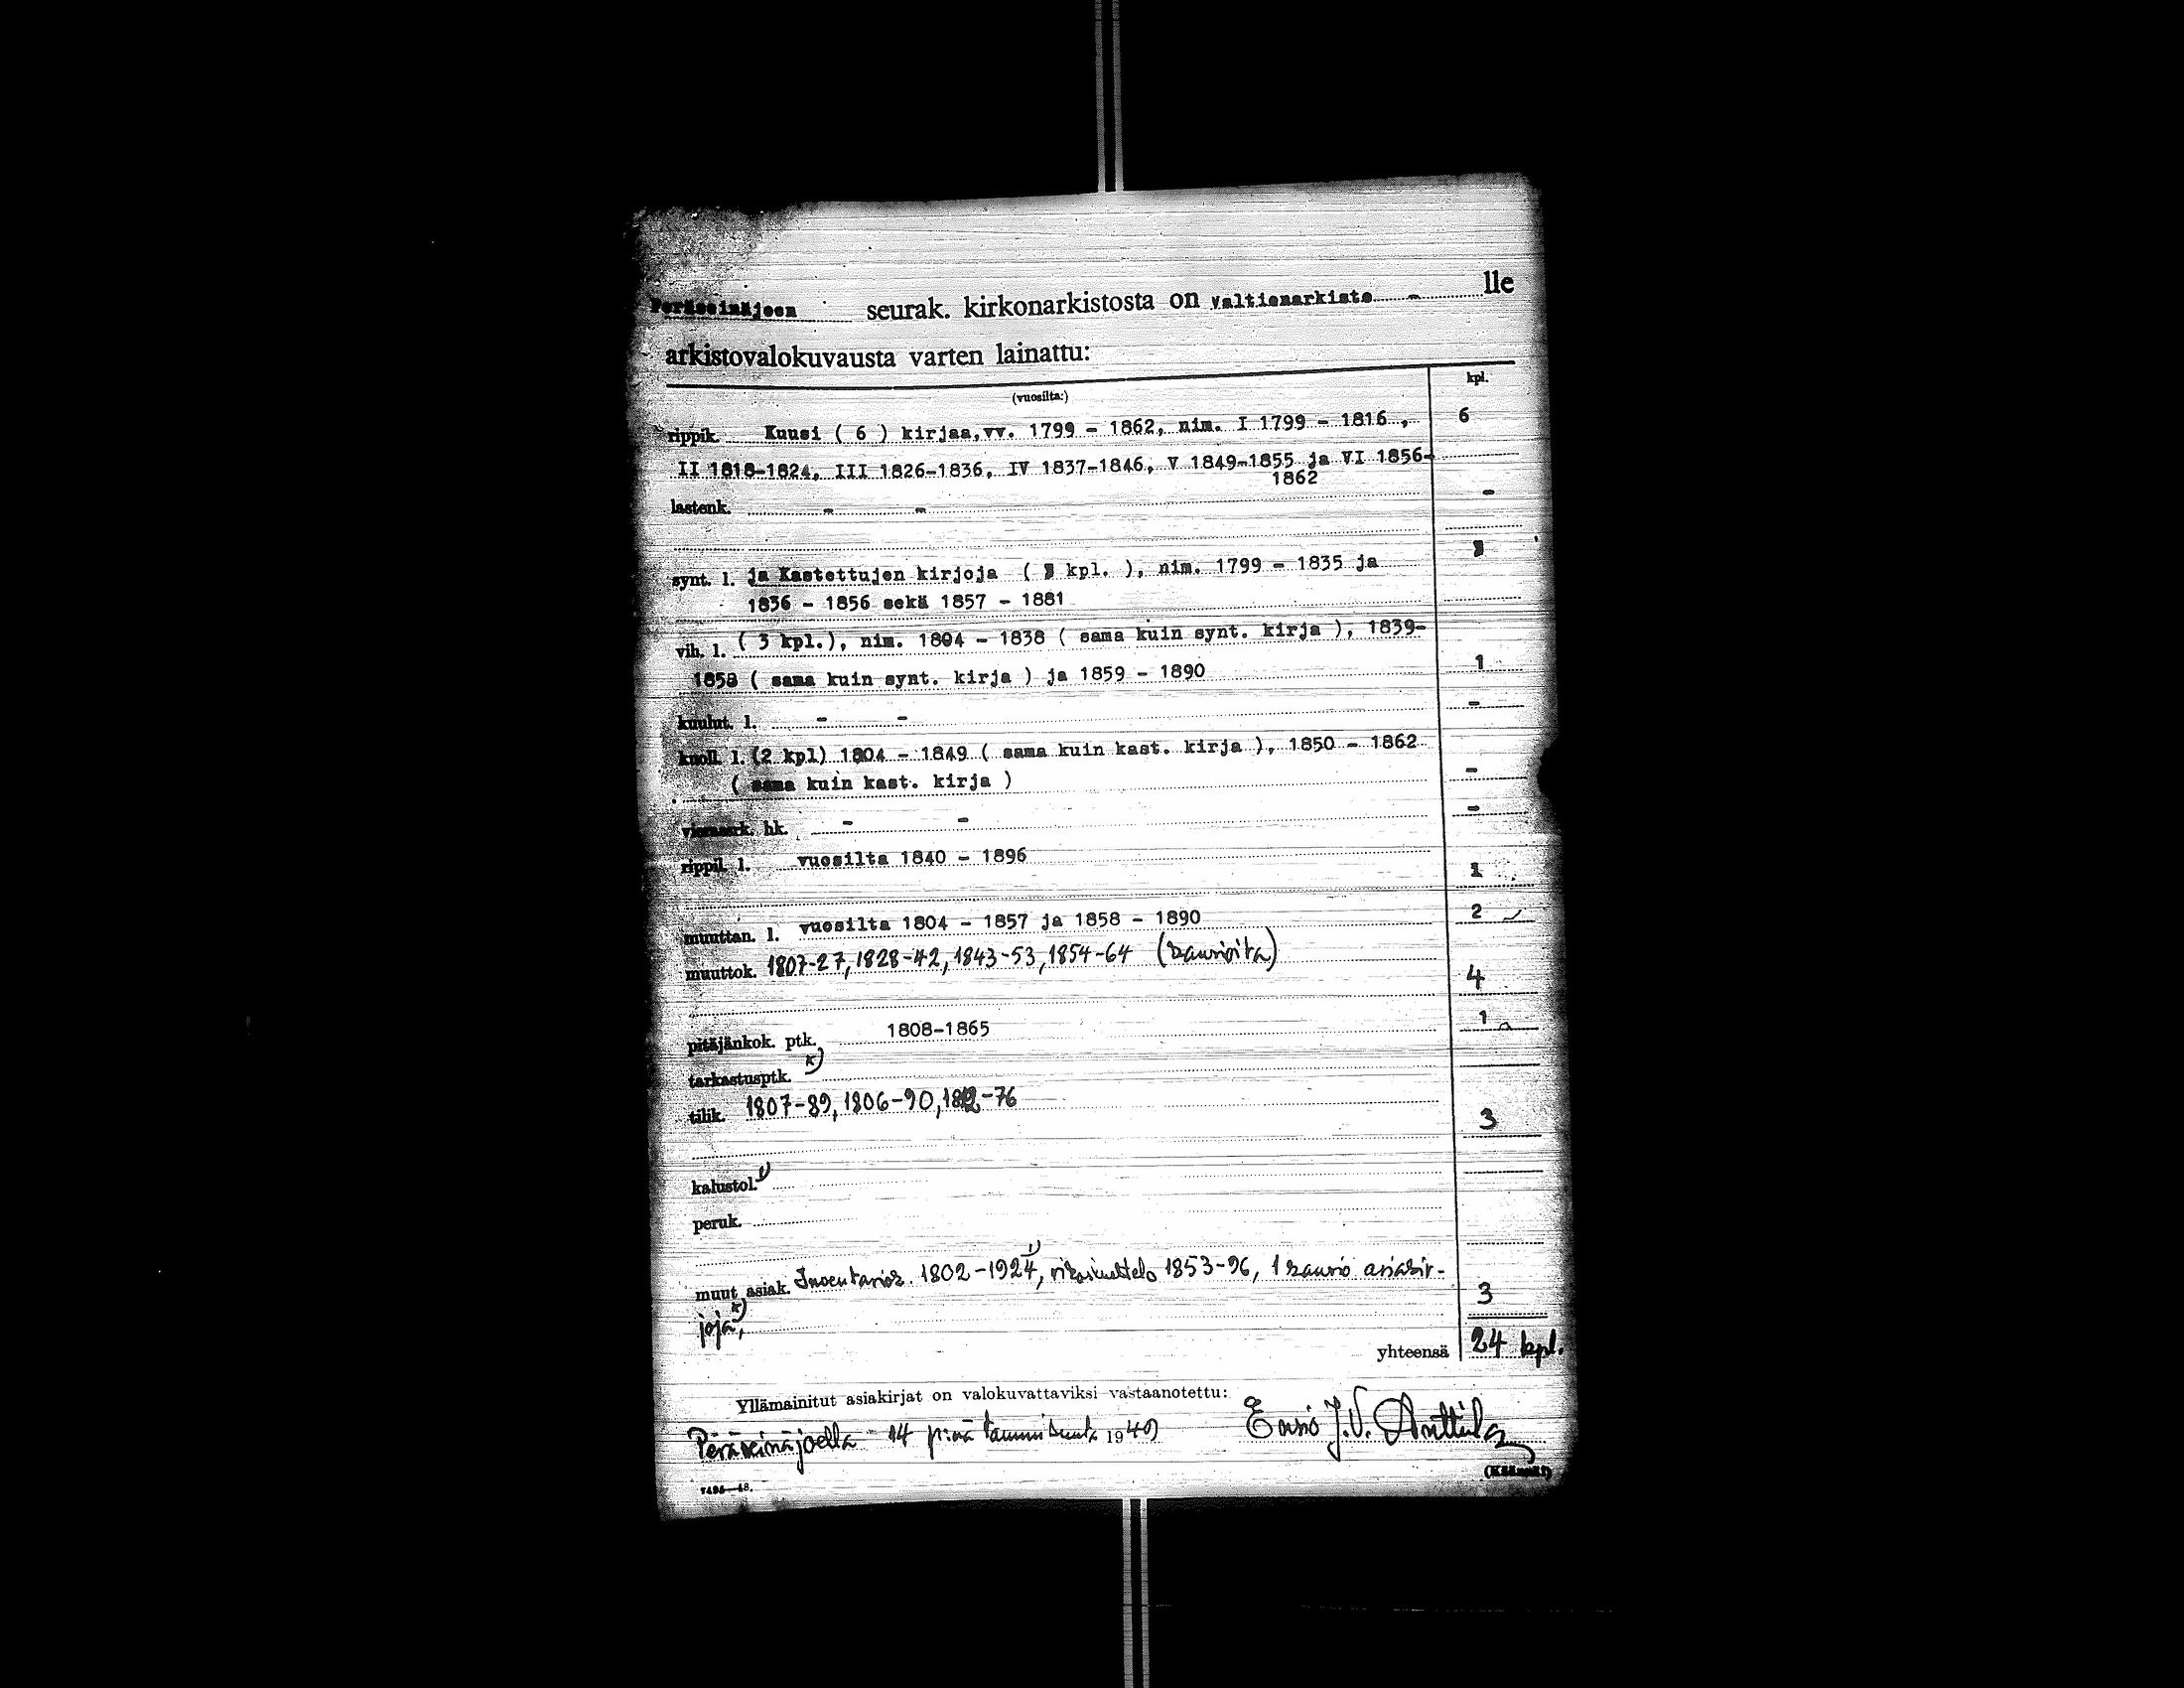 Peräseinäjoen seurak. kirkonarkistosta on Valtionarkisto - lle
arkistovalokuvausta varten lainattu:
(vuosilta:) kpl.
rippik. Kuusi ( 6 ) kirjaa, vv. 1799 - 1862, nim. I 1799 - 1816 , 6
II 1818-1824, III 1826-1836, IV 1837-1846, V 1849-1855 ja VI 1856-
1862
lastenk. - - -
synt. l. ja Kastettujen kirjoja ( 3 kpl. ), nim. 1799 - 1835 ja 3
1836 - 1856 sekä 1857 - 1881
vih. l. ( 3 kpl.), nim. 1804 - 1838 ( sama kuin synt. kirja ), 1839-
1858 ( sama kuin synt. kirja ) ja 1859 - 1890 1
kuulut. l. - - -
kuoll. l. (2 kpl) 1804 - 1849 ( sama kuin kast. kirja ), 1850 - 1862
( sama kuin kast. kirja ) -
hk. - - -
rippil. l. vuosilta 1840 - 1896 1
muuttan. l. vuosilta 1804 - 1857 ja 1858 - 1890 2
muuttok. 1807-27, 1828-42, 1843-53, 1854-64 (kansioita) 4
pitäjänkok. ptk. 1808-1865 1
tarkastusptk. x)
tilik. 1807-89, 1806-90, -76 3
kalustol. 1)
peruk.
muut asiak. Inventariok. 1802-1924 1), rikosluettelo 1853-96, 1 kansio asiakir-
joja x), 3
yhteensä 24 kpl.
Yllämainitut asiakirjat on valokuvattaviksi vastaanotettu:
Peräseinäjoella 14 p:nä tammikuuta 1949 Ensio J.V. Anttila